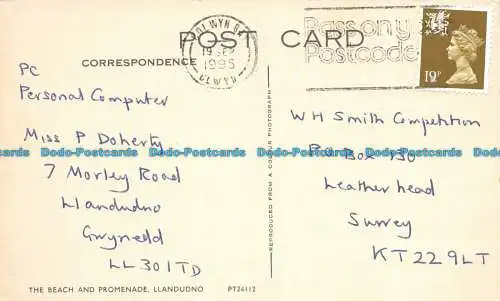 POST CARD
CORRESPONDENCE
COLWYN BAY
1995
CLWYD
Pass on your
Postcode
19P
PC
Personal Computer
Miss P Doherty
7 Morley Road
Llandudno
Gwynedd
LL301TD
WH Smith Competition
PO Box 730
Leatherhead
Surrey
KT22 9LT
REPRODUCED FROM A COLOUR PHOTOGRAPH
THE BEACH AND PROMENADE, LLANDUDNO PT24112
Dodo-Postcards Dodo-Postcards Dodo-Postcards Dodo-Postcards Dodo-Postcards